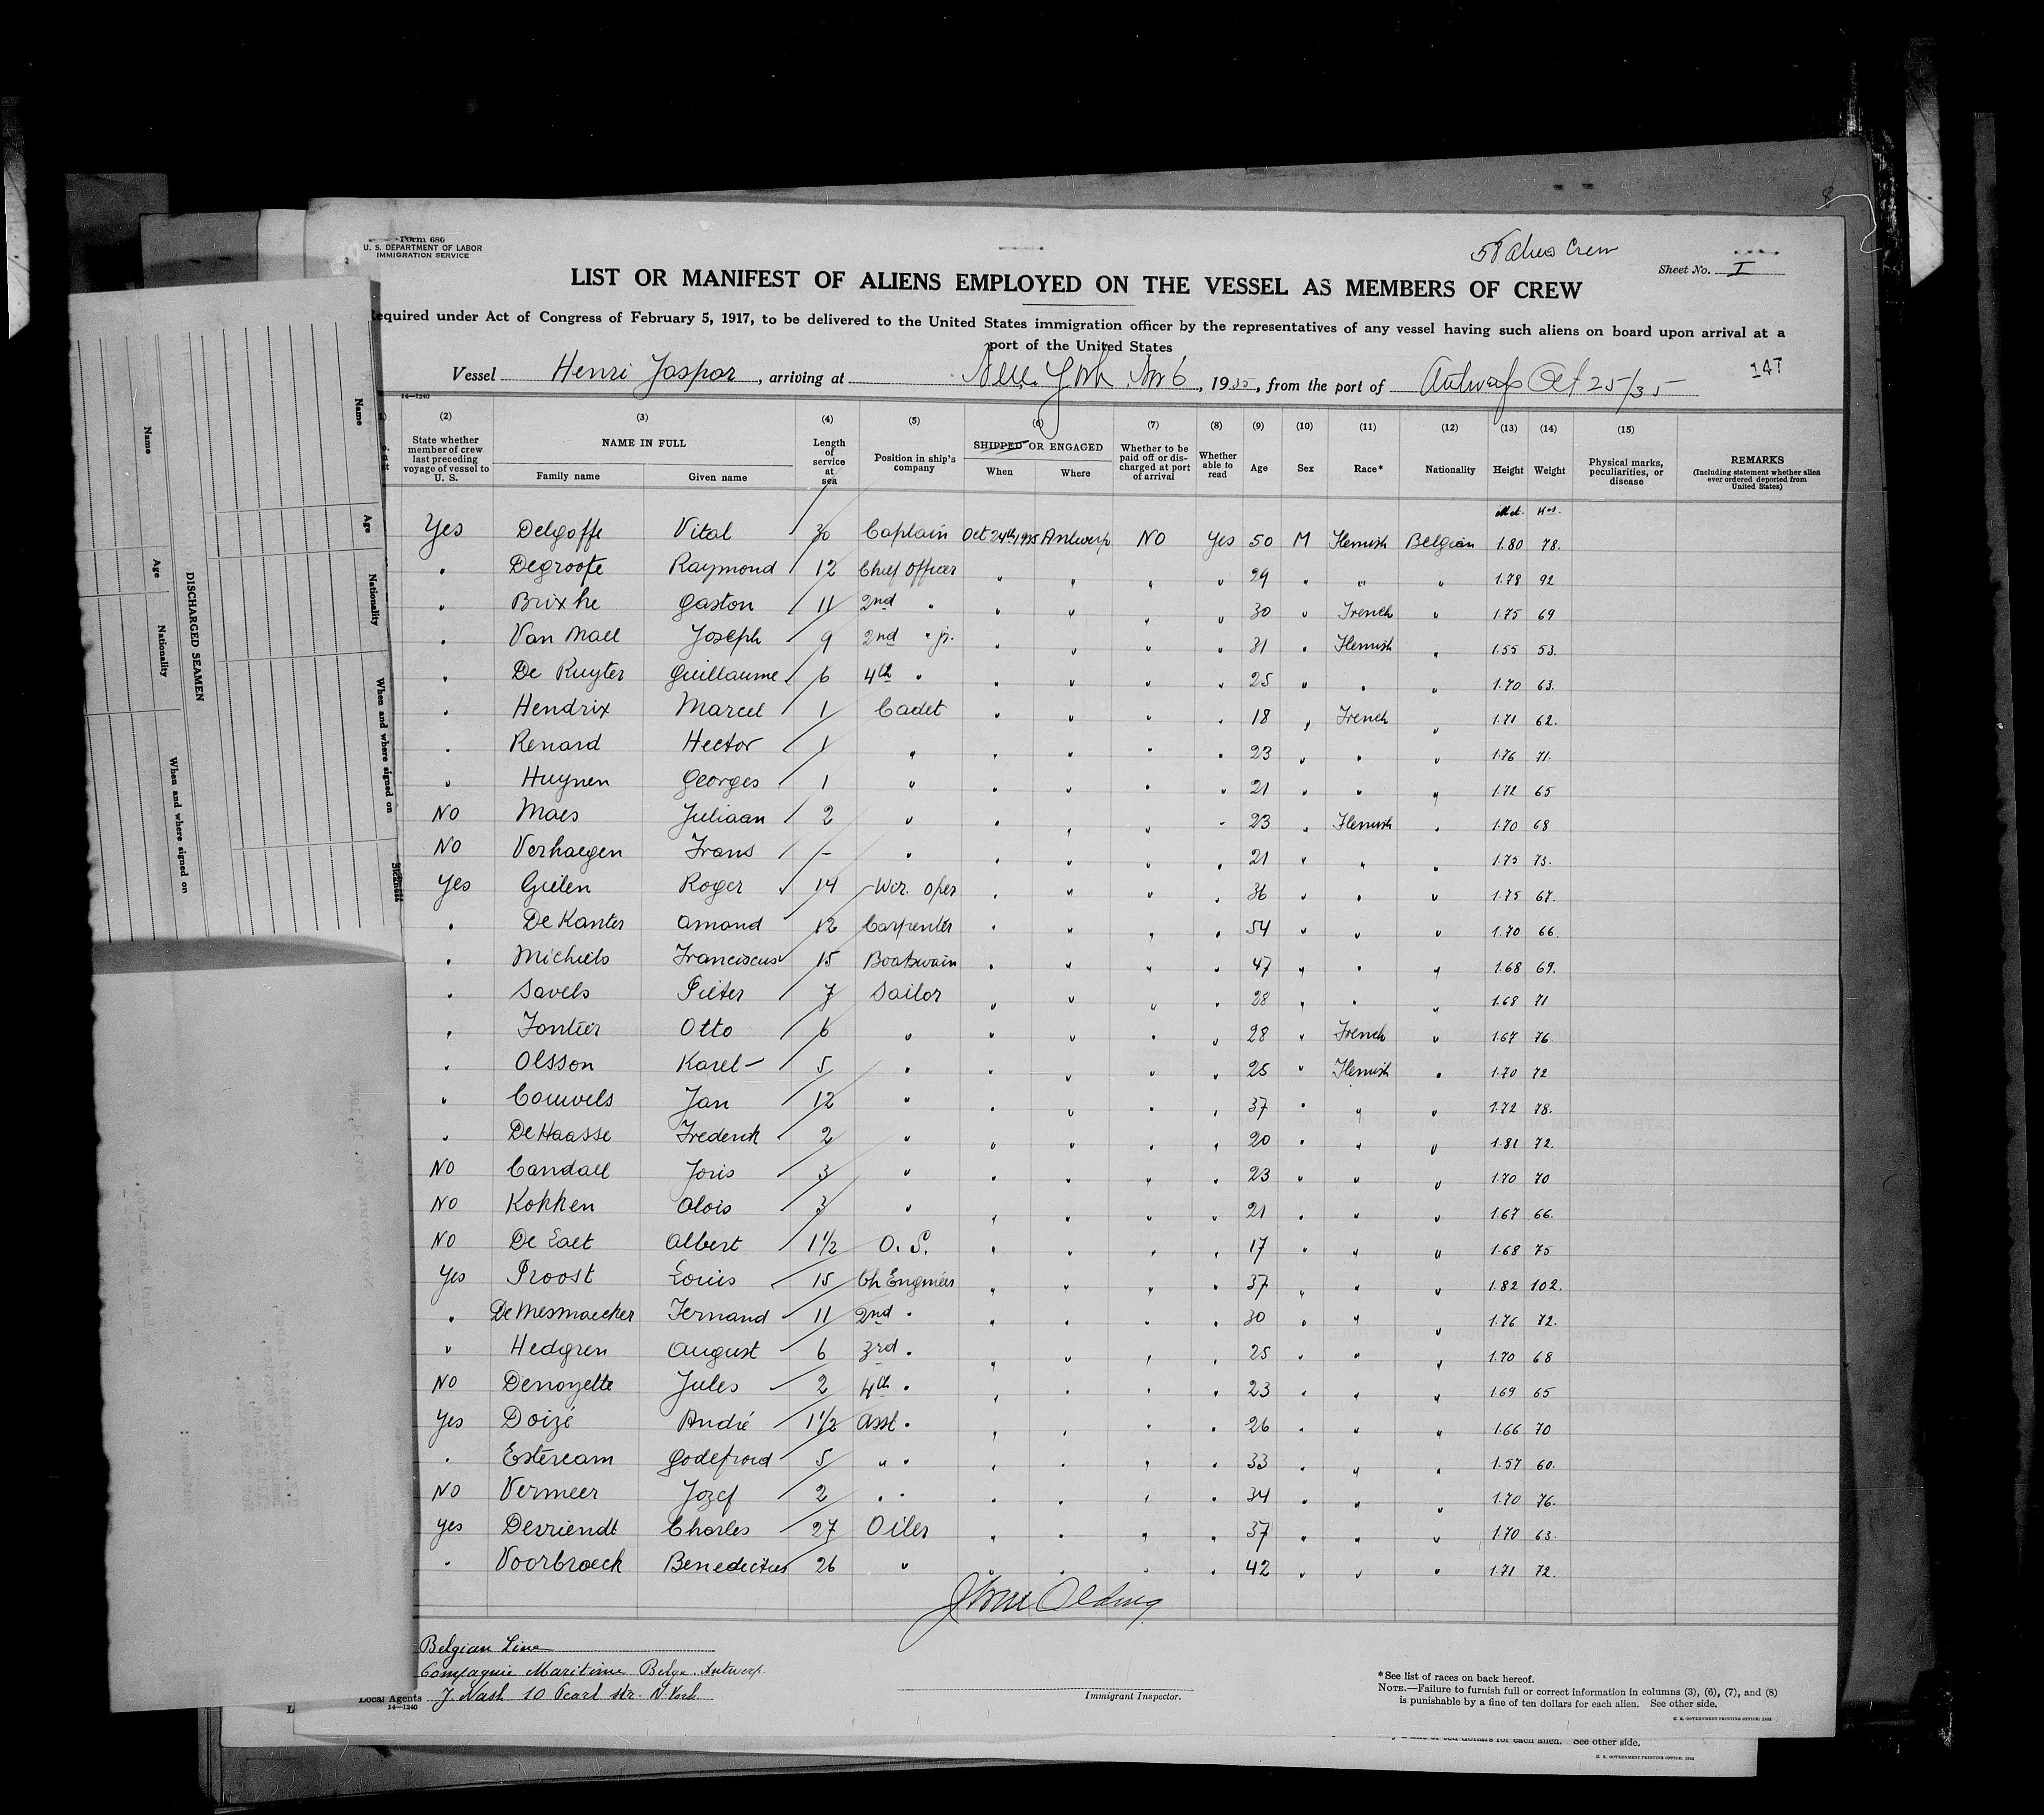 Form 680
U. S. DEPARTMENT OF LABOR
IMMIGRATION SERVICE
Crew
Sheet No. I
LIST OR MANIFEST OF ALIENS EMPLOYED ON THE VESSEL AS MEMBERS OF CREW
equired under Act of Congress of February 5, 1917, to be delivered to the United States immigration officer by the representatives of any vessel having such aliens on board upon arrival at a
port of the United States
147
Vessel Henri Jaspar, arriving at New York Nov 6, 1935, from the port of Antwerp Oct 25/35
14—1240
(2) (3) (4) (5) (6) (7) (8) (9) (10) (11) (12) (13) (14) (15)
State whether member of crew last preceding voyage of vessel to U. S. NAME IN FULL Family name Given name Length of service at sea Position in ship's company SHIPPED OR ENGAGED When Where Whether to be paid off or discharged at port of arrival Whether able to read Age Sex Race* Nationality Height Weight Physical marks, peculiarities, or disease REMARKS (Including statement whether alien ever ordered deported from United States)
Met. Kos.
Yes Delgoffe Vital 30 Captain Oct 24th 1935 Antwerp NO Yes 50 M Flemish Belgian 1.80 78.
" Degroote Raymond 12 Chief Officer " " " " 29 " " " 1.78 92
" Brixhe Gaston 11 2nd " " " " " 30 " French " 1.75 69
" Van Mael Joseph 9 2nd " jr. " " " " 31 " Flemish " 1.55 53.
" De Ruyter Guillaume 6 4th " " " " " 25 " " " 1.70 63.
" Hendrix Marcel 1 Cadet " " " " 18 " French " 1.71 62.
" Renard Hector 1 " " " " " 23 " " " 1.76 71.
" Huynen Georges 1 " " " " " 21 " " " 1.72 65
NO Maes Juliaan 2 " " " " " 23 " Flemish " 1.70 68
NO Verhaegen Frans – " " " " " 21 " " " 1.75 73.
Yes Gielen Roger 14 Wir. Oper " " " " 36 " " " 1.75 67.
" De Kanter Amand 12 Carpenter " " " " 54 " " " 1.70 66.
" Michiels Franciscus 15 Boatswain " " " " 47 " " " 1.68 69.
" Savels Pieter 7 Sailor " " " " 28 " " " 1.68 71
" Fontier Otto 6 " " " " " 28 " French " 1.67 76
" Olsson Karel 5 " " " " " 25 " Flemish " 1.70 72
" Couwels Jan 12 " " " " " 37 " " " 1.72 78.
" De Haasse Frederik 2 " " " " " 20 " " " 1.81 72.
NO Candael Joris 3 " " " " " 23 " " " 1.70 70
NO Kokken Alois 3 " " " " " 21 " " " 1.67 66.
NO De Laet Albert 1 1/2 O. S. " " " " 17 " " " 1.68 75
Yes Proost Louis 15 Ch Engineer " " " " 37 " " " 1.82 102.
" De Mesmaecker Fernand 11 2nd " " " " " 30 " " " 1.76 72.
" Hedgren August 6 3rd " " " " " 25 " " " 1.70 68
NO Denoyette Jules 2 4th " " " " " 23 " " " 1.69 65
Yes Doizé André 1 1/2 Asst " " " " " 26 " " " 1.66 70
" Godefroid 5 " " " " " " 33 " " " 1.57 60.
NO Vermeer Jozef 2 " " " " " " 34 " " " 1.70 76.
Yes Devriendt Charles 27 Oiler " " " " 37 " " " 1.70 63.
" Voorbraeck Benedictus 26 " " " " " 42 " " " 1.71 72.
Belgian Line
Compagnie Maritime Belge. Antwerp.
Local Agents J Nash 10 Pearl str. N. York
14—1240
Immigrant Inspector.
*See list of races on back hereof.
NOTE.—Failure to furnish full or correct information in columns (3), (6), (7), and (8)
is punishable by a fine of ten dollars for each alien. See other side.
U. S. GOVERNMENT PRINTING OFFICE: 1932
ten dollars for each alien. See other side.
U. S. GOVERNMENT PRINTING OFFICE: 1932
DISCHARGED SEAMEN
Name
Age
Nationality
When and where signed on
Name
Age
Nationality
When and where signed on